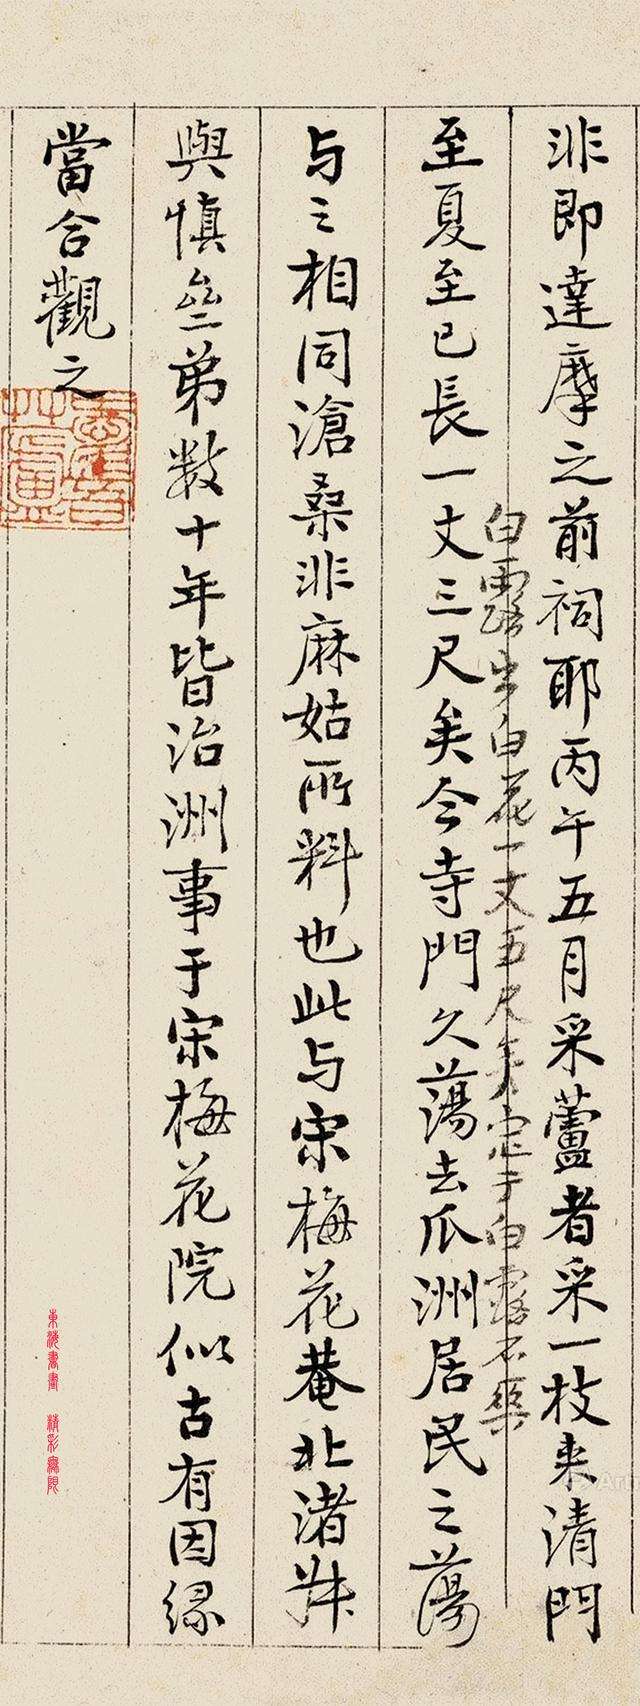 非即達摩之前祠耶丙午五月采蘆者采一枝来清門
白露出白花一丈五尺矣定于白露不與
至夏至已長一丈三尺矣今寺門久蕩去瓜洲居民之蕩
与之相同滄桑非麻姑所料也此与宋梅花菴北渚
與慎弟数十年皆治洲事于宋梅花院似古有因缘
當合觀之
東海書畫 精彩